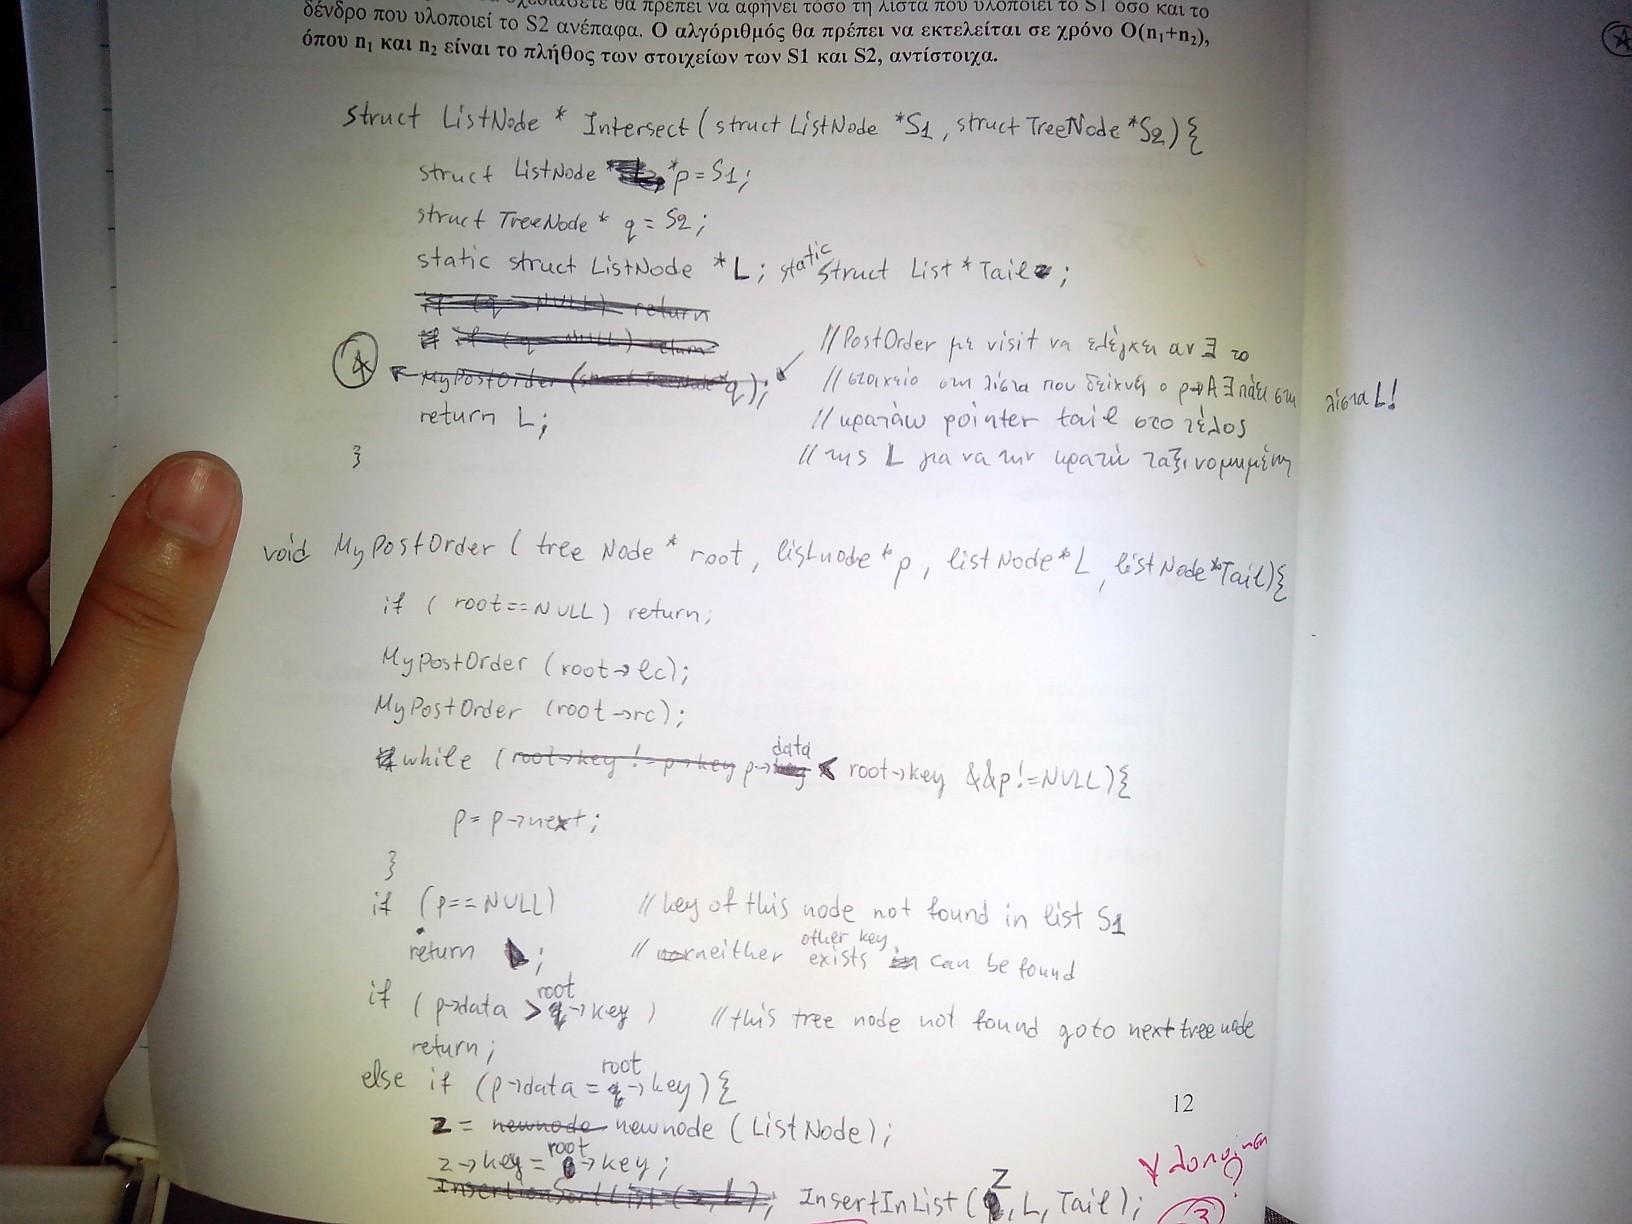 θα πρέπει να αφήνει τόσο τη λίστα που υλοποιεί το S1 όσο και το
δένδρο που υλοποιεί το S2 ανέπαφα. Ο αλγόριθμός θα πρέπει να εκτελείται σε χρόνο O(n1+n2),
όπου n1 και n2 είναι το πλήθος των στοιχείων των S1 και S2, αντίστοιχα.
struct ListNode * Intersect (struct ListNode *S1, struct TreeNode *S2){
struct ListNode * *p = S1;
struct TreeNode * q = S2;
static struct ListNode *L; static struct List * Tail;
if (q == NULL) return
if (q == NULL) return
//PostOrder με visit να ελέγχει αν ∃ το
A MyPostOrder (struct TreeNode* q); //στοιχείο στη λίστα που δείχνει ο p→Α ∃ πάει στη λίστα L!
return L; //κρατάω pointer tail στο τέλος
} //της L για να την κρατώ ταξινομημένη
void MyPostOrder (tree Node * root, listnode * p, listNode * L, listNode *Tail){
if (root==NULL) return;
MyPostOrder (root→lc);
MyPostOrder (root→rc);
while (root→key != p→key p→key data < root→key &&p!=NULL){
p = p→next;
}
if (p==NULL) //key of this node not found in list S1
return ; //neither other key exists can be found
if (p→data > root→key) //this tree node not found goto next tree node
return;
else if (p→data = root→key){
z = newnode newnode (ListNode);
z→key = root→key;
InsertionSortList (z, L); InsertInList (z, L, Tail);
υλοποίηση
?
3
12